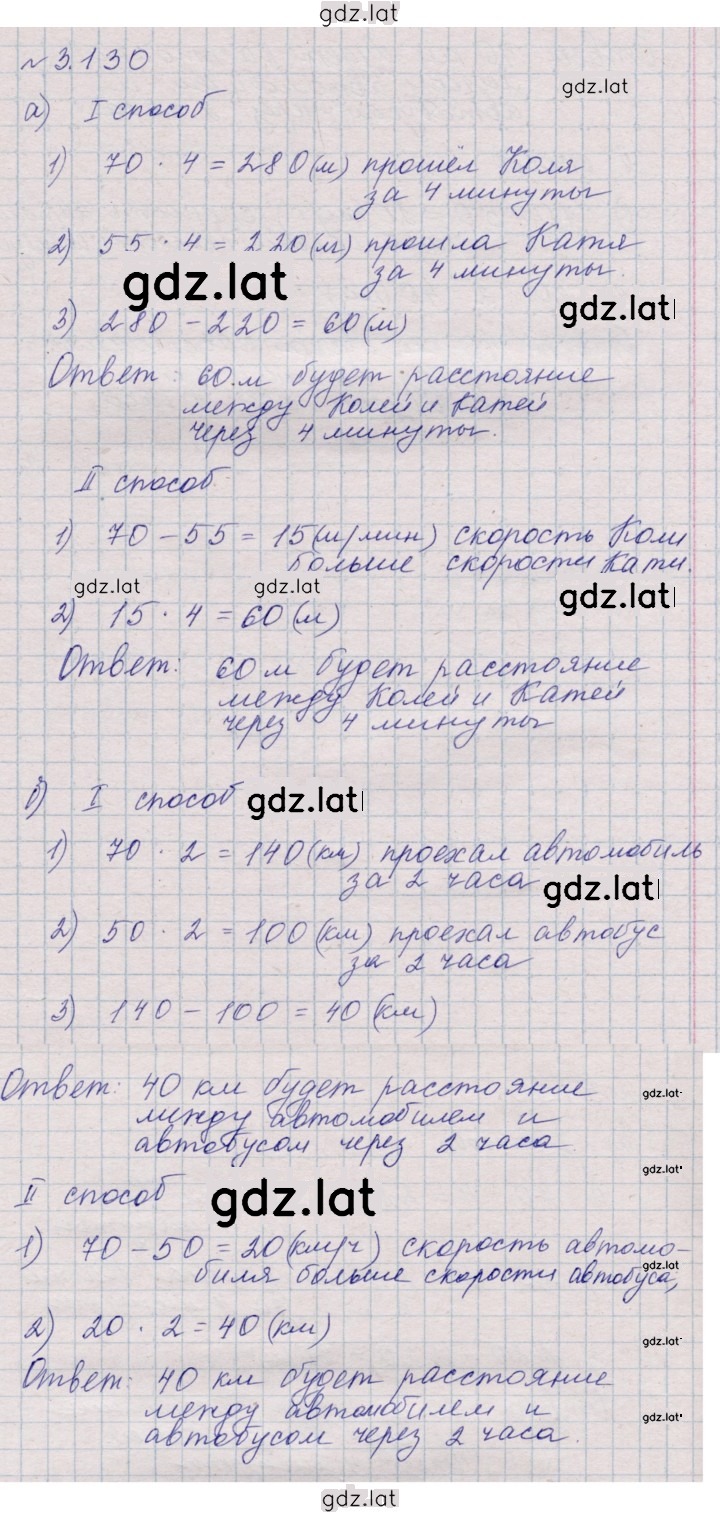 gdz.lat
№ 3.130
gdz.lat
а) I способ
1) 70 · 4 = 280 (м) прошёл Коля
за 4 минуты
2) 55 · 4 = 220 (м) прошла Катя
за 4 минуты.
gdz.lat
gdz.lat
3) 280 - 220 = 60 (м)
Ответ: 60 м будет расстояние
между Колей и Катей
через 4 минуты.
II способ
1) 70 - 55 = 15 (м/мин) скорость Коли
больше скорости Кати.
gdz.lat gdz.lat gdz.lat
2) 15 · 4 = 60 (м)
Ответ: 60 м будет расстояние
между Колей и Катей
через 4 минуты
б) I способ gdz.lat
1) 70 · 2 = 140 (км) проехал автомобиль
за 2 часа gdz.lat
2) 50 · 2 = 100 (км) проехал автобус
за 2 часа
3) 140 - 100 = 40 (км)
Ответ: 40 км будет расстояние gdz.lat
между автомобилем и
автобусом через 2 часа
gdz.lat
II способ gdz.lat
1) 70 - 50 = 20 (км/ч) скорость автомо-
gdz.lat
биля больше скорости автобуса,
2) 20 · 2 = 40 (км) gdz.lat
Ответ: 40 км будет расстояние
между автомобилем и gdz.lat
автобусом через 2 часа.
gdz.lat